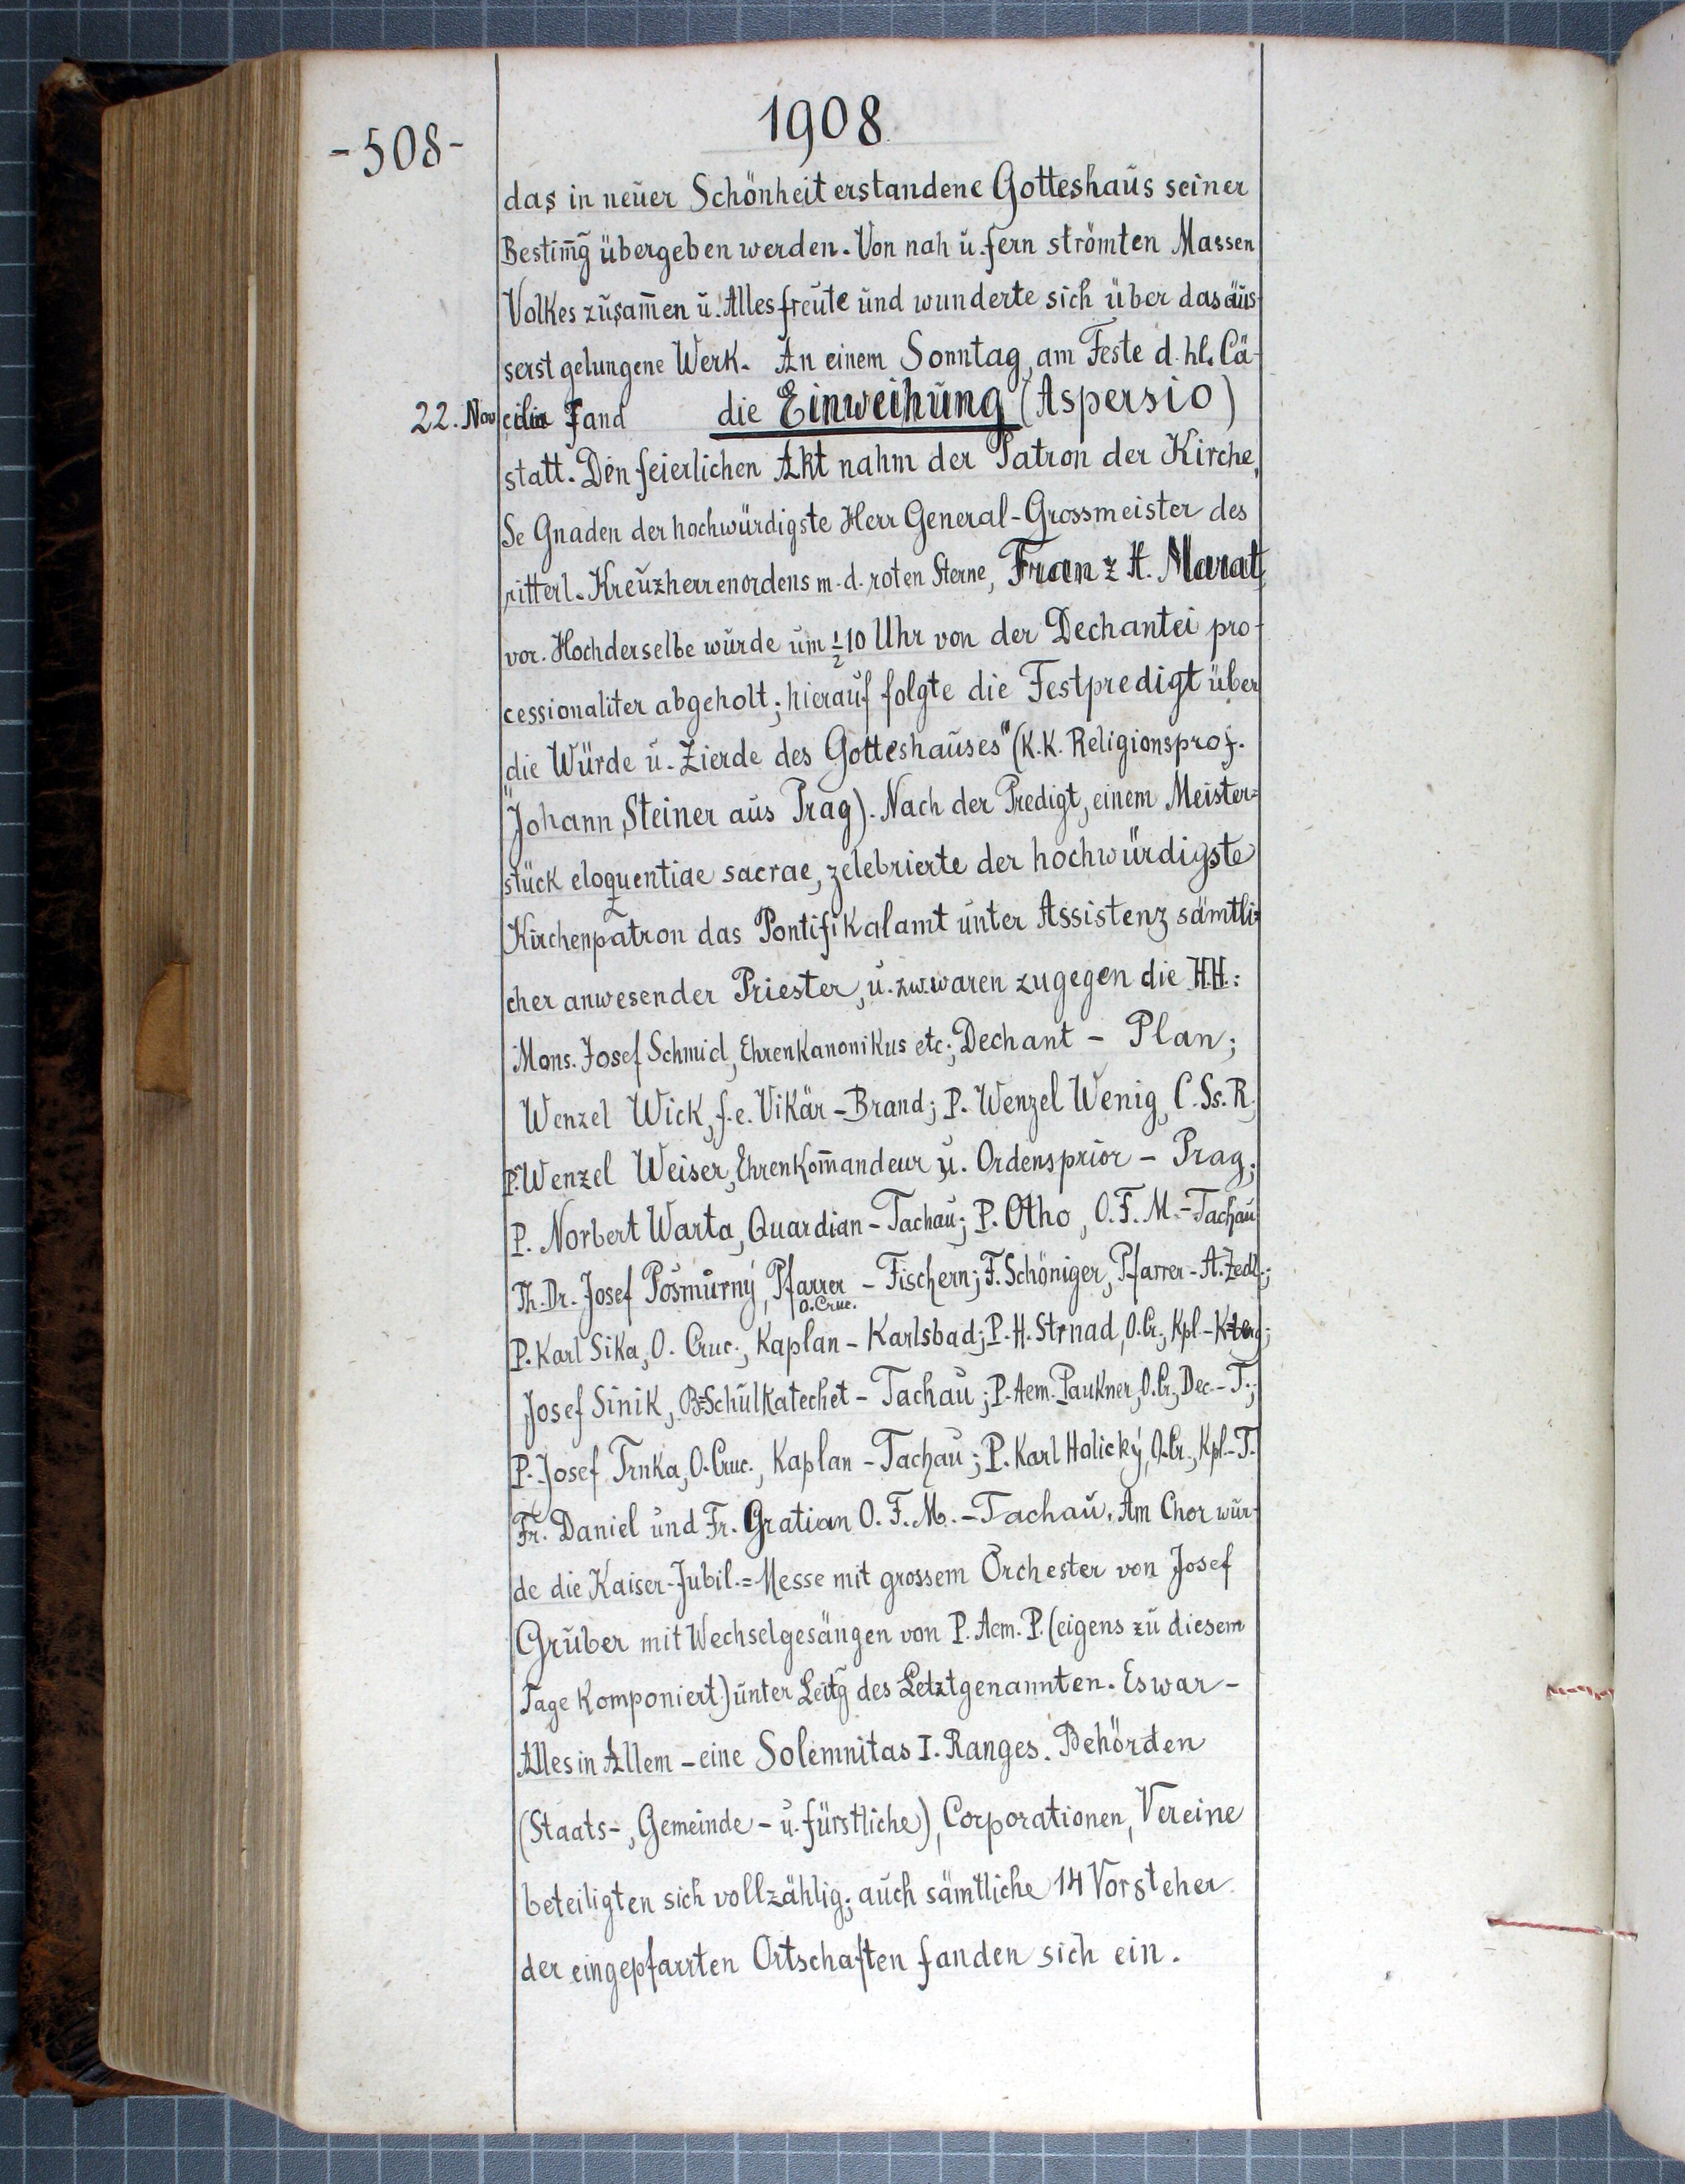 -508-
1908.
das in neuer Schönheit erstandene Gotteshaus seiner
Bestim̄g übergeben werden. Von nah u. fern strömten Massen
Volkes zusam̄en u. Alles freute und wunderte sich über das äus-
serst gelungene Werk. An einem Sonntag, am Feste d. hl. Cä-
22. Nov cilia fand die Einweihung (Aspersio)
statt. Den feierlichen Akt nahm der Patron der Kirche,
Se Gnaden der hochwürdigste Herr General-Grossmeister des
ritterl. Kreuzherrenordens m. d. roten Sterne, Franz H. Marat,
vor. Hochderselbe wurde um ½10 Uhr von der Dechantei pro-
cessionaliter abgeholt; hierauf folgte die Festpredigt über
„die Würde u. Zierde des Gotteshauses" (K.K. Religionsprof.
Johann Steiner aus Prag). Nach der Predigt, einem Meister=
stück eloquentiae sacrae, zelebrierte der hochwürdigste
Kirchenpatron das Pontifikalamt unter Assistenz sämtli=
cher anwesender Priester, u. zw. waren zugegen die H.H.:
Mons. Josef Schmid, Ehrenkanonikus etc., Dechant - Plan;
Wenzel Wick, f.e. Vikär - Brand; P. Wenzel Wenig, C. Ss. R.
P. Wenzel Weiser, Ehrenkom̄andeur u. Ordensprior - Prag;
P. Norbert Warta, Quardian - Tachau; P. Otho, O. F. M. - Tachau
Th. Dr. Josef Pošmůrný, Pfarrer - Fischern; F. Schöniger, Pfarrer - A. Zedl.;
O. Cruc.
P. Karl Sika, O. Cruc., Kaplan - Karlsbad; P. H. Strnad, O. Cr., Kpl. -
Josef Sinik, B=Schulkatechet - Tachau; P. Aem. Paukner, O. Cr., Dec. - T.;
P. Josef Trnka, O. Cruc., Kaplan - Tachau; P. Karl Halický, O. Cr., Kpl. - T.
Fr. Daniel und Fr. Gratian O. F. M. - Tachau. Am Chor wur-
de die Kaiser-Jubil.=Messe mit grossem Orchester von Josef
Gruber mit Wechselgesängen von P. Aem. P. (eigens zu diesem
Tage komponiert) unter Leitḡ des Letztgenannten. Es war -
Alles in Allem - eine Solemnitas I. Ranges. Behörden
(Staats-, Gemeinde- u. fürstliche), Corporationen, Vereine
beteiligten sich vollzählig; auch sämtliche 14 Vorsteher
der eingepfarrten Ortschaften fanden sich ein.